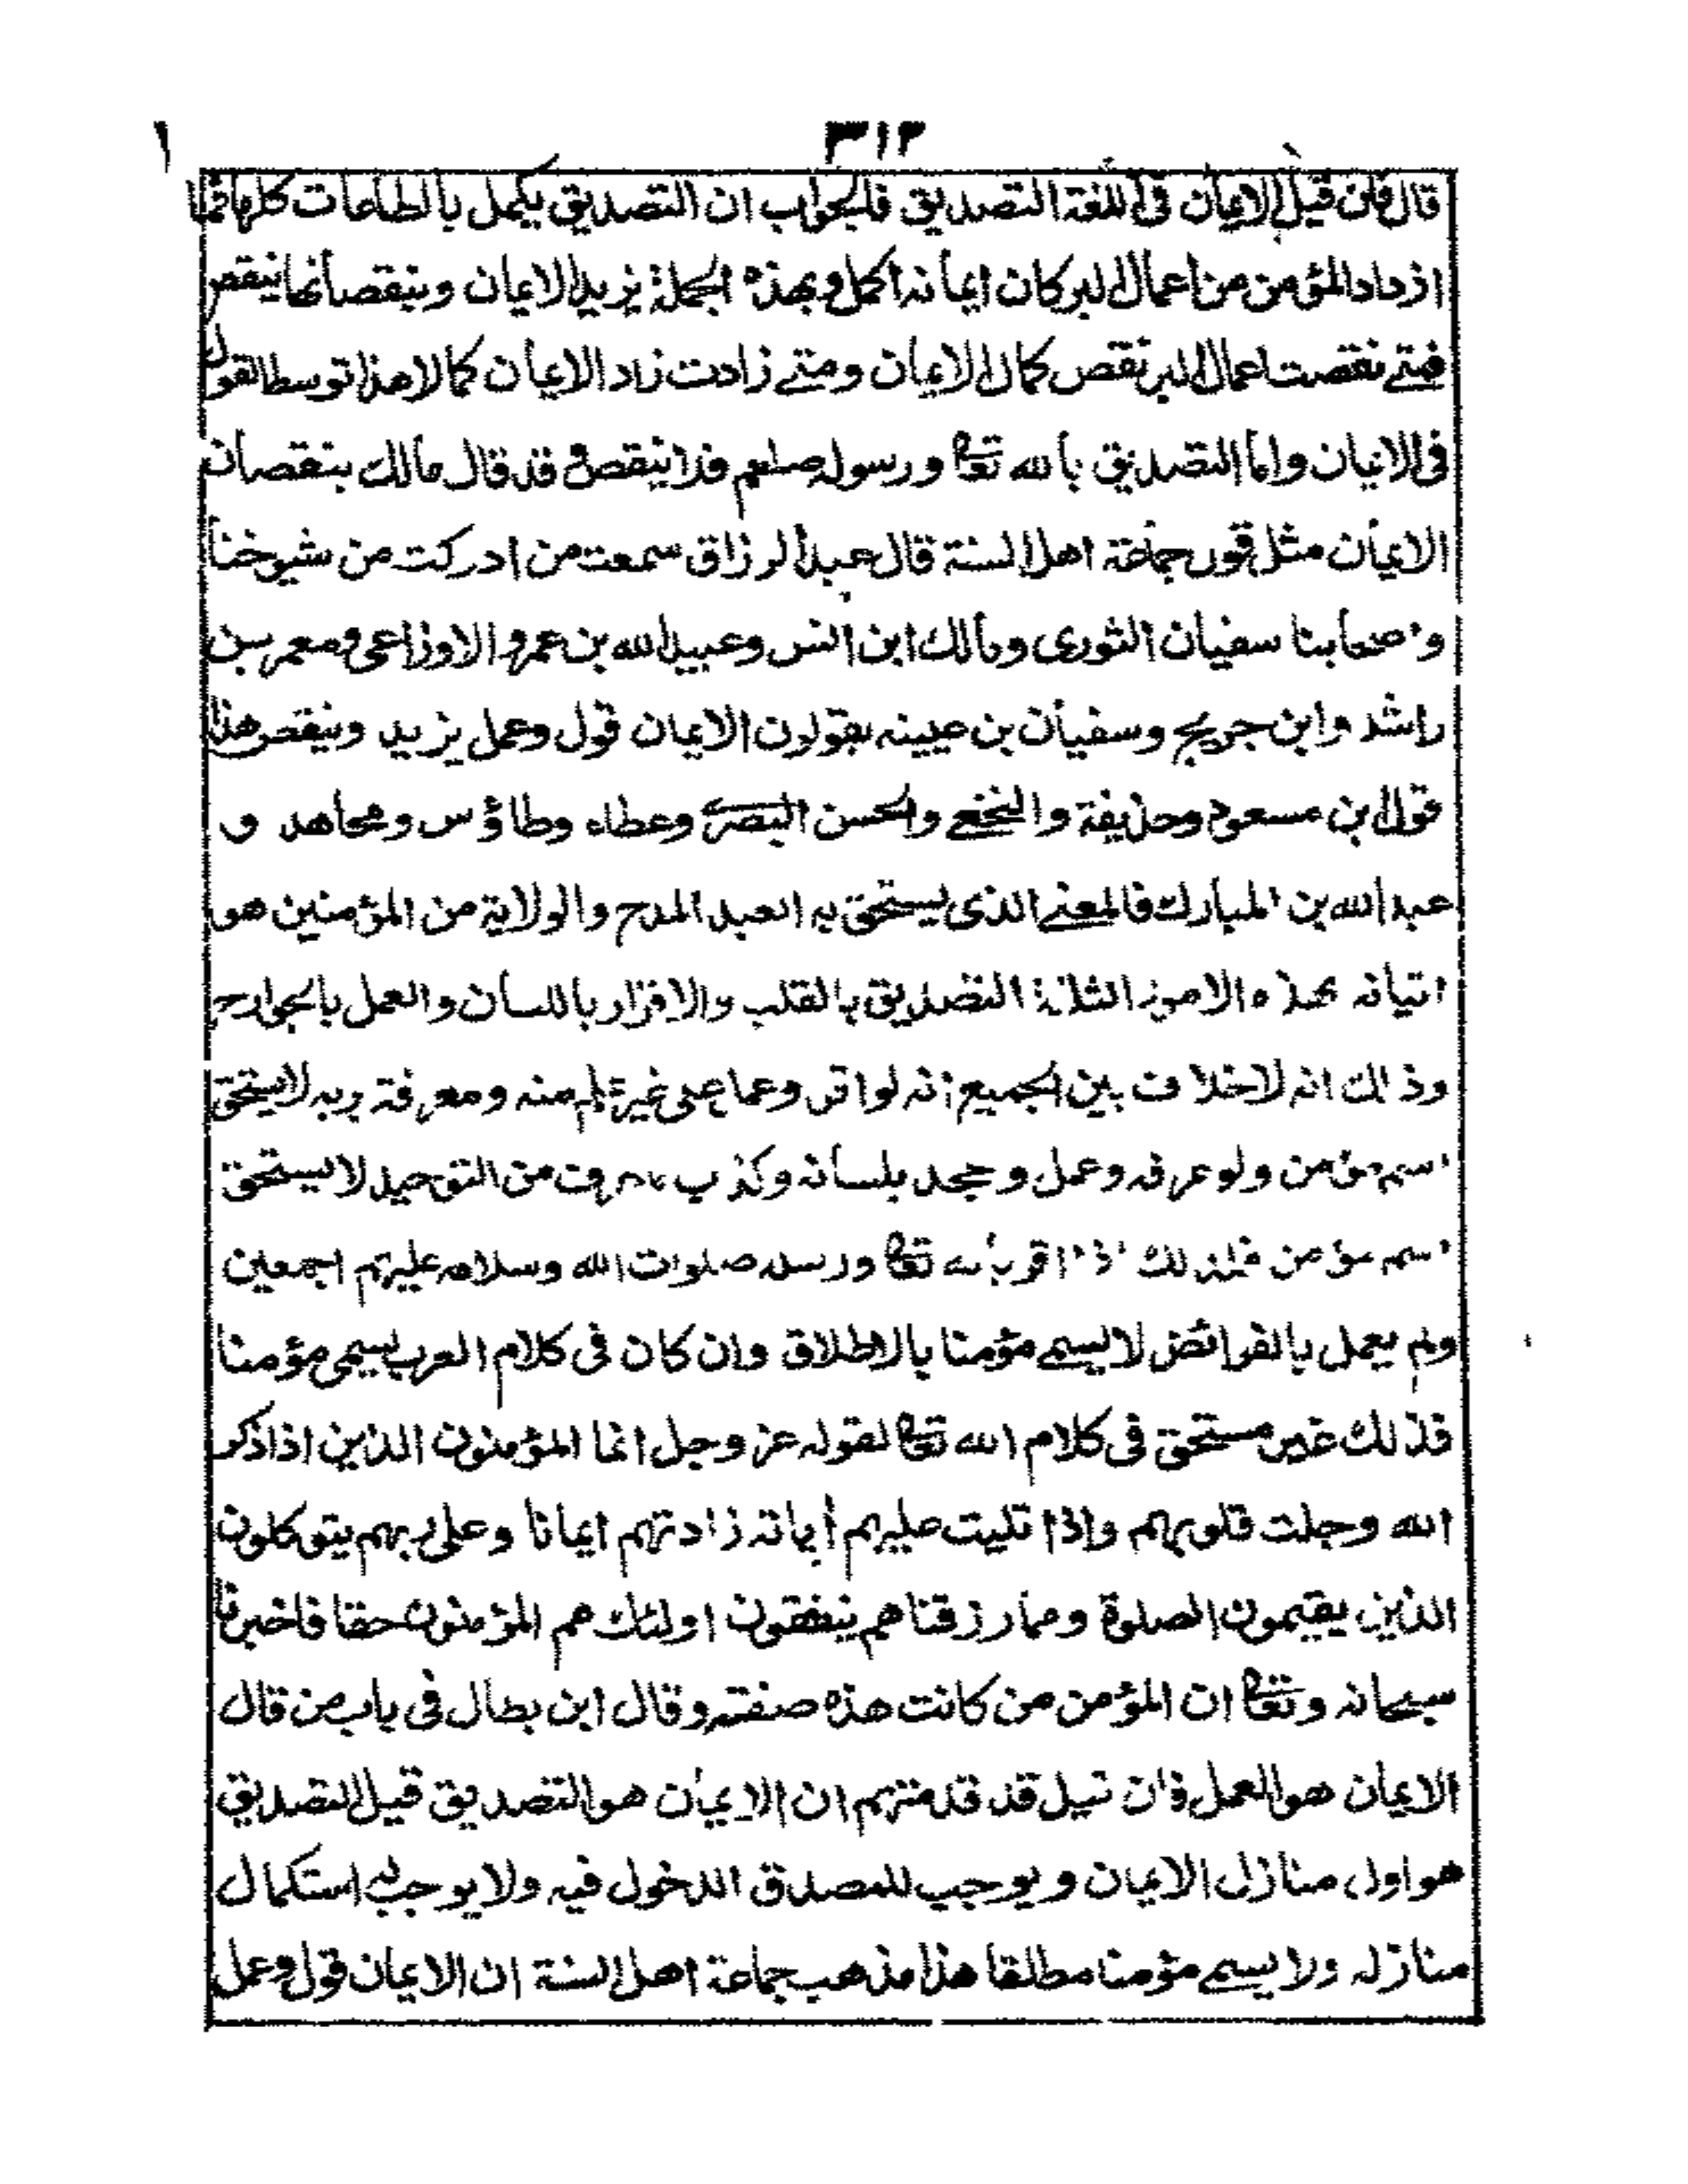 ٣١٢
١
قال فان قيل الايمان فى اللغة التصديق فالجواب ان التصديق يكمل بالطاعات كلها فما
ازداد المؤمن من اعمال البر كان ايمانه اكمل وبهذه الجملة يزيد الايمان وبنقصانها ينقص
فمتے نقصت اعمال البر نقص كمال الايمان ومتے زادت زاد الايمان كمالا هذا توسط القول
فى الايمان واما التصديق بالله تعالى ورسوله صلعم فلا ينقص و قد قال مالك بنقصان
الايمان مثل قول جماعة اهل السنة قال عبد الرزاق سمعت من ادركت من شيوخنا
واصحابنا سفيان الثورى ومالك ابن انس وعبيد الله بن عمرو الاوزاعى ومعمر بن
راشد وابن جريج وسفيان بن عيينه يقولون الايمان قول وعمل يزيد وينقص هذا
قول ابن مسعود وحذيفة والنخعے والحسن البصرے وعطاء وطاؤس ومجاهد و
عبد الله بن المبارك فالمعنے الذى يستحق به العبد المدح والولاية من المؤمنين هو
اتيانه بهذه الامور الثلاثة التصديق بالقلب والاقرار باللسان والعمل بالجوارح
وذالك انه لاخلاف بين الجميع انه لو اقر وعمل على غير علم منه ومعرفة بربه لايستحق
اسم مؤمن ولو عرفه وعمل وجحد بلسانه وكذب ما عرف من التوحيد لا يستحق
اسم مؤمن فكذلك اذا اقر بالله تعالى ورسله صلوات الله وسلامه عليهم اجمعين
ولم يعمل بالفرائض لا يسمے مؤمنا بالاطلاق وان كان فى كلام العرب يسمى مؤمنا
فذلك غير مستحق فى كلام الله تعالى لقوله عز وجل انما المؤمنون الذين اذا ذكر
الله وجلت قلوبهم واذا تليت عليهم اياته زادتهم ايمانا وعلى ربهم يتوكلون
الذين يقيمون الصلوة ومما رزقناهم ينفقون اولئك هم المؤمنون حقا فاخبرنا
سبحانه وتعالى ان المؤمن من كانت هذه صفته وقال ابن بطال فى باب من قال
الايمان هو العمل فان قيل قد قدمتم ان الايمان هو التصديق قيل التصديق
هو اول منازل الايمان ويوجب للمصدق الدخول فيه ولا يوجب له استكمال
منازله ولا يسمے مؤمنا مطلقا هذا مذهب جماعة اهل السنة ان الايمان قول وعمل